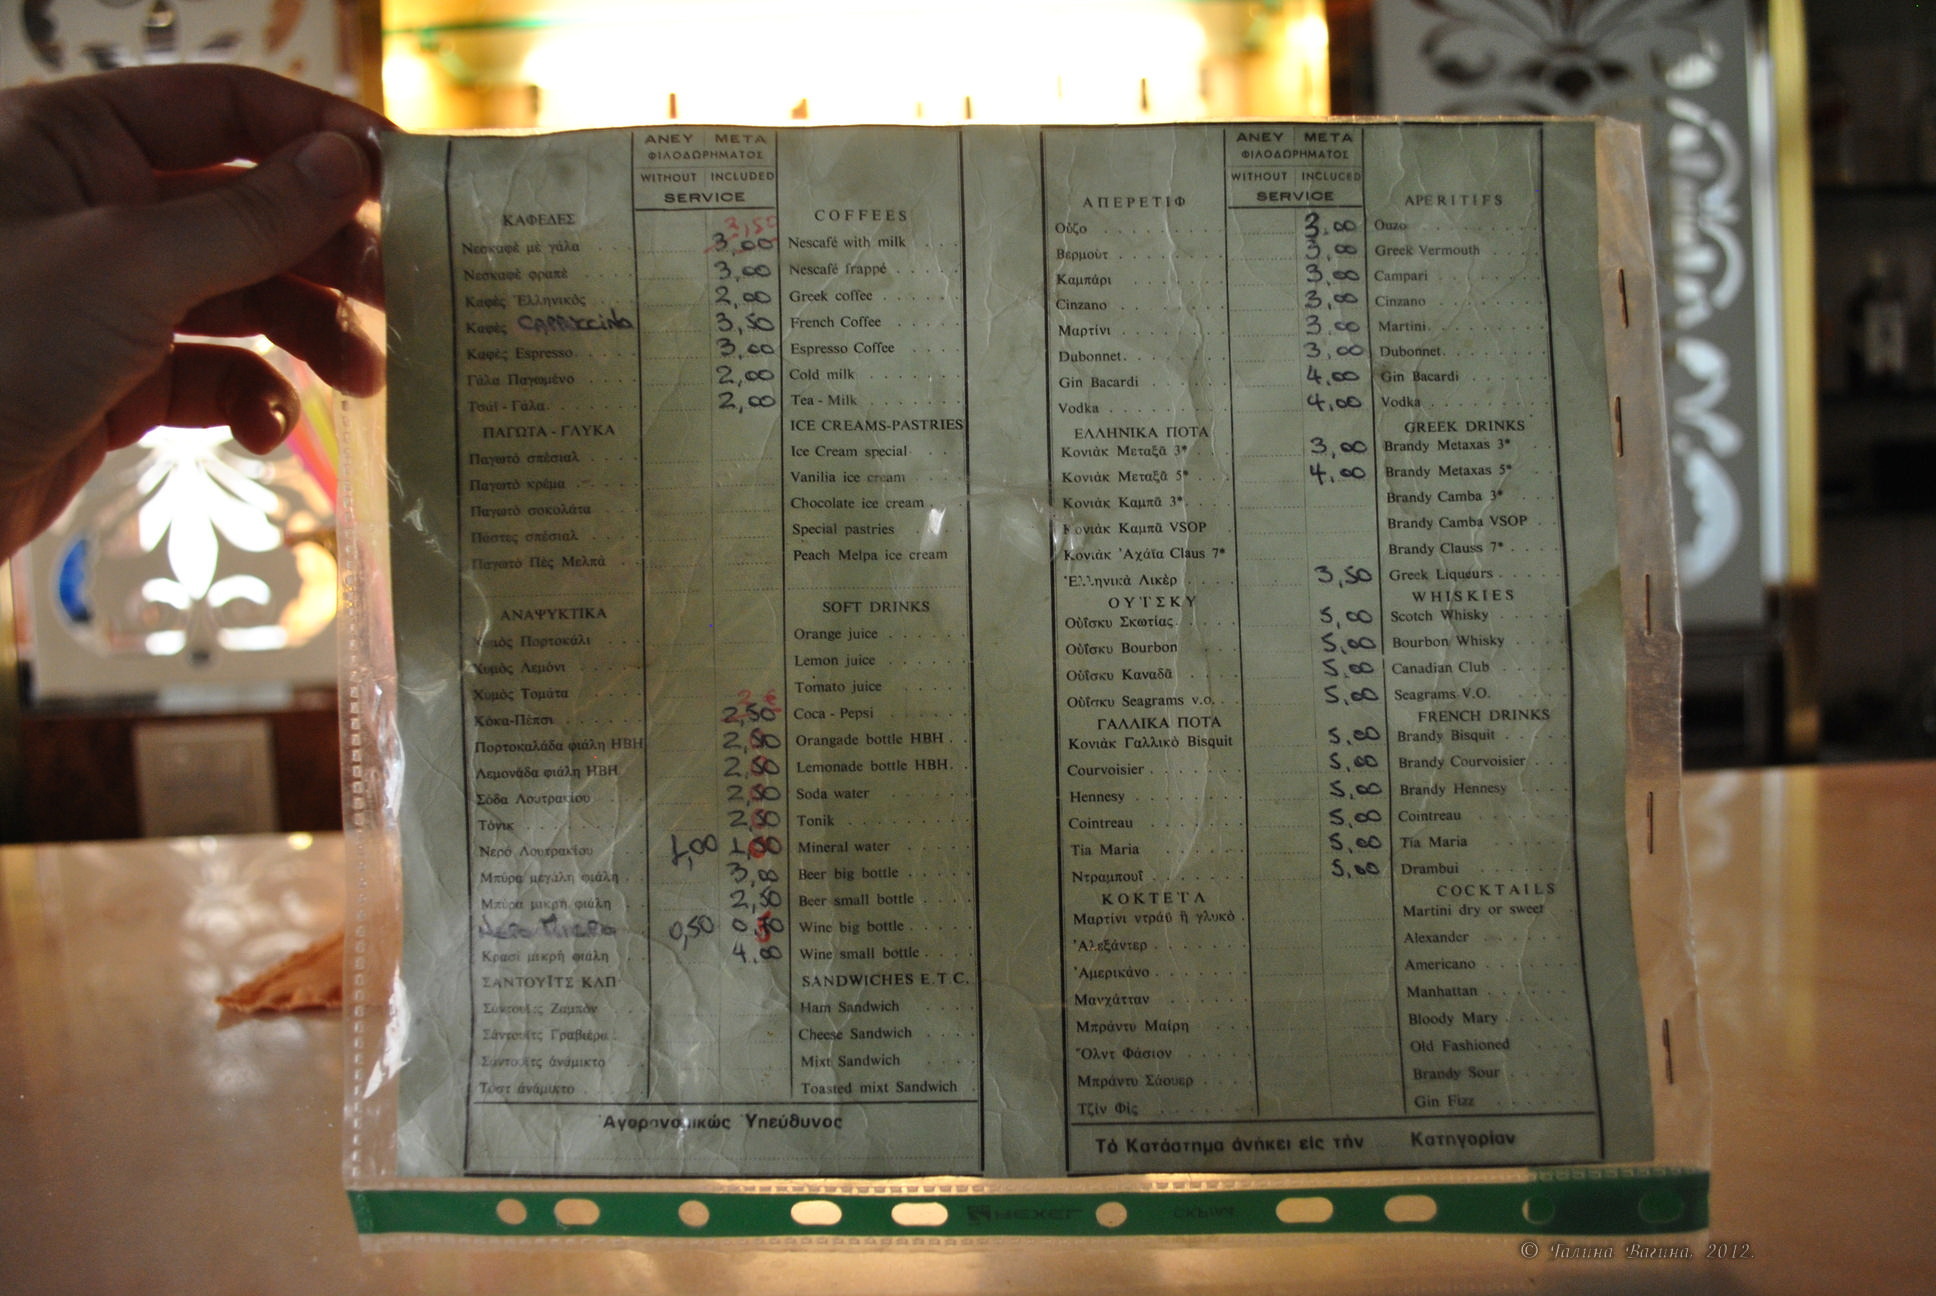 ΑΝΕΥ ΜΕΤΑ
ΦΙΛΟΔΩΡΗΜΑΤΟΣ
WITHOUT INCLUDED
SERVICE
ΚΑΦΕΔΕΣ COFFEES
3,50
Νεσκαφέ μὲ γάλα 3,00 Nescafé with milk
Νεσκαφέ φραπέ 3,00 Nescafé frappé
Καφές Ἑλληνικός 2,00 Greek coffee
Καφές CAPPUCCINO 3,50 French Coffee
Καφές Espresso 3,00 Espresso Coffee
Γάλα Παγωμένο 2,00 Cold milk
Τσάϊ - Γάλα 2,00 Tea - Milk
ΠΑΓΩΤΑ - ΓΛΥΚΑ ICE CREAMS-PASTRIES
Παγωτό σπέσιαλ Ice Cream special
Παγωτό κρέμα Vanilia ice cream
Παγωτό σοκολάτα Chocolate ice cream
Πάστες σπέσιαλ Special pastries
Παγωτό Πὲς Μελπά Peach Melpa ice cream
ΑΝΑΨΥΚΤΙΚΑ SOFT DRINKS
Χυμὸς Πορτοκάλι Orange juice
Χυμὸς Λεμόνι Lemon juice
Χυμὸς Τομάτα Tomato juice
2 €
Κόκα-Πέπσι 2,50 Coca - Pepsi
Πορτοκαλάδα φιάλη ΗΒΗ 2,50 Orangade bottle HBH
Λεμονάδα φιάλη ΗΒΗ 2,50 Lemonade bottle HBH
Σόδα Λουτρακίου 2,50 Soda water
Τόνικ 2,50 Tonik
Νερό Λουτρακίου 1,00 1,00 Mineral water
Μπύρα μεγάλη φιάλη 3,00 Beer big bottle
Μπύρα μικρή φιάλη 2,50 Beer small bottle
0,50 Wine big bottle
Κρασί μικρή φιάλη 4,00 Wine small bottle
ΣΑΝΤΟΥΪΤΣ ΚΛΠ SANDWICHES E.T.C.
Σάντουϊτς Ζαμπόν Ham Sandwich
Σάντουϊτς Γραβιέρα Cheese Sandwich
Σάντουϊτς ἀνάμικτο Mixt Sandwich
Τόστ ἀνάμικτο Toasted mixt Sandwich
Ἀγορανομικῶς Ὑπεύθυνος
ΑΝΕΥ ΜΕΤΑ
ΦΙΛΟΔΩΡΗΜΑΤΟΣ
WITHOUT INCLUCED
SERVICE
ΑΠΕΡΕΤΙΦ APERITIFS
Οὖζο 3,00 Ouzo
Βερμούτ 3,00 Greek Vermouth
Καμπάρι 3,00 Campari
Cinzano 3,00 Cinzano
Μαρτίνι 3,00 Martini
Dubonnet 3,00 Dubonnet
Gin Bacardi 4,00 Gin Bacardi
Vodka 4,00 Vodka
ΕΛΛΗΝΙΚΑ ΠΟΤΑ GREEK DRINKS
Κονιὰκ Μεταξᾶ 3* 3,00 Brandy Metaxas 3*
Κονιὰκ Μεταξᾶ 5* 4,00 Brandy Metaxas 5*
Κονιὰκ Καμπᾶ 3* Brandy Camba 3*
Κονιὰκ Καμπᾶ VSOP Brandy Camba VSOP
Κονιὰκ Ἀχάϊα Claus 7* Brandy Clauss 7*
Ἑλληνικὰ Λικὲρ 3,50 Greek Liqueurs
ΟΥΪΣΚΥ WHISKIES
Οὐΐσκυ Σκωτίας 5,00 Scotch Whisky
Οὐΐσκυ Bourbon 5,00 Bourbon Whisky
Οὐΐσκυ Καναδᾶ 5,00 Canadian Club
Οὐΐσκυ Seagrams v.o. 5,00 Seagrams V.O.
ΓΑΛΛΙΚΑ ΠΟΤΑ FRENCH DRINKS
Κονιὰκ Γαλλικὸ Bisquit 5,00 Brandy Bisquit
Courvoisier 5,00 Brandy Courvoisier
Hennesy 5,00 Brandy Hennesy
Cointreau 5,00 Cointreau
Tia Maria 5,00 Tia Maria
Ντραμπουῒ 5,00 Drambui
ΚΟΚΤΕΤΛ COCKTAILS
Μαρτίνι ντράϋ ἢ γλυκὸ Martini dry or sweet
Ἀλεξάντερ Alexander
Ἀμερικάνο Americano
Μανχάτταν Manhattan
Μπράντυ Μαίρη Bloody Mary
Ὄλντ Φάσιον Old Fashioned
Μπράντυ Σάουερ Brandy Sour
Τζὶν Φὶς Gin Fizz
Τὸ Κατάστημα ἀνήκει εἰς τὴν Κατηγορίαν
© Галина Вагина, 2012.